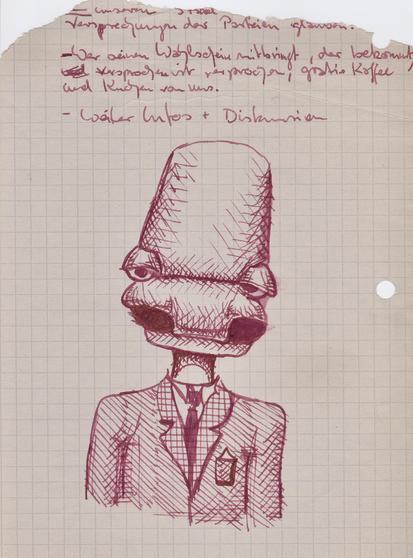 unserem
Versprechungen der Parteien glauben.
- Wer seinen Wahlschein mitbringt, der bekommt
versprochen ist versprochen, gratis Kaffee
und Kuchen von uns.
- Infos + Diskussion